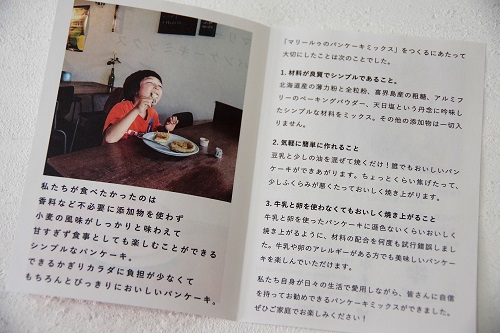 私たちが食べたかったのは
香料など不必要に添加物を使わず
小麦の風味がしっかりと味わえて
甘すぎず食事としても楽しむことができる
シンプルなパンケーキ。
できるかぎりカラダに負担が少なくて
もちろんとびっきりにおいしいパンケーキ。
「マリールゥのパンケーキミックス」をつくるにあたって
大切にしたことは次のことでした。
1. 材料が良質でシンプルであること。
北海道産の薄力粉と全粒粉、喜界島産の粗糖、アルミフ
リーのベーキングパウダー、天日塩という丹念に吟味し
たシンプルな材料をミックス。その他の添加物は一切入
りません。
2. 気軽に簡単に作れること
豆乳と少しの油を混ぜて焼くだけ！誰でもおいしいパン
ケーキができあがります。ちょっとくらい焦げたって、
少しふくらみが悪くたっておいしく焼き上がります。
3. 牛乳と卵を使わなくてもおいしく焼き上がること
牛乳と卵を使ったパンケーキに遜色ないくらいおいしく
焼き上がるように、材料の配合を何度も試行錯誤しまし
た。牛乳や卵のアレルギーがある方でも美味しいパンケー
キを楽しんでいただけます。
私たち自身が日々の生活で愛用しながら、皆さんに自信
を持ってお勧めできるパンケーキミックスができました。
ぜひご家庭でお楽しみください！